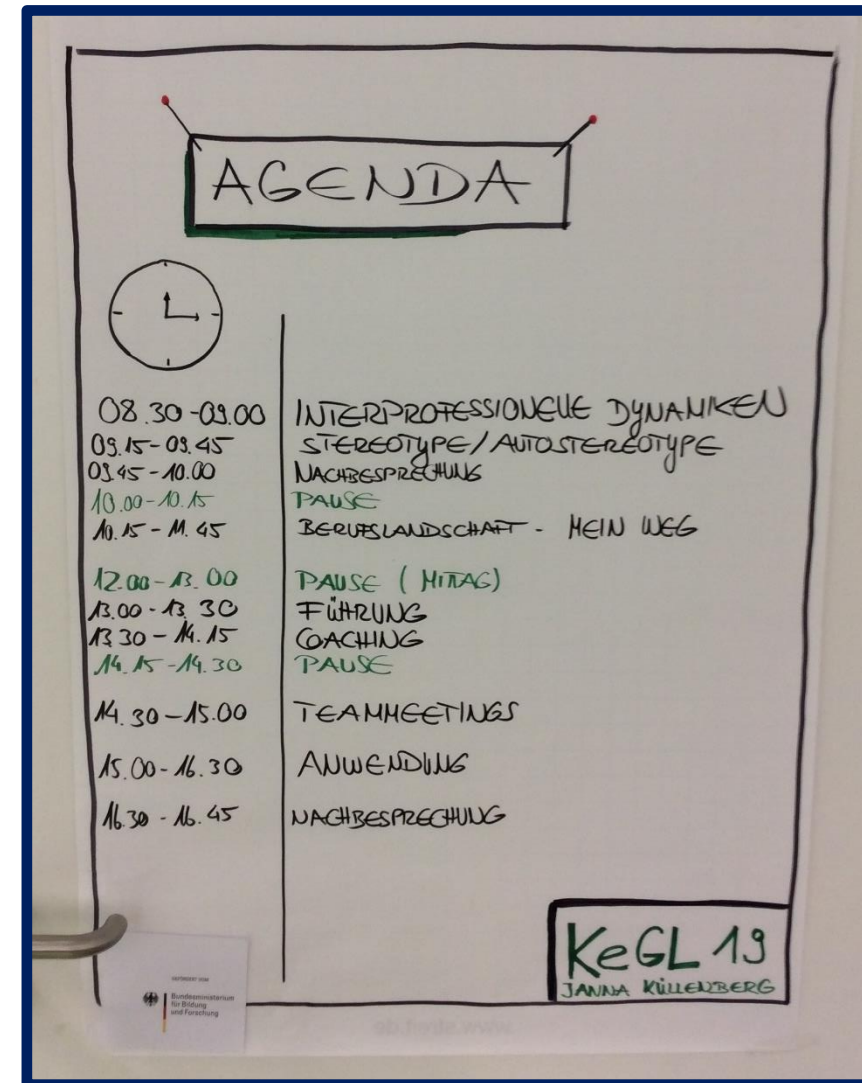 AGENDA
08.30-09.00 INTERPROFESSIONELLE DYNAMIKEN
09.15-09.45 STEREOTYPE/AUTOSTEREOTYPE
09.45-10.00 NACHBESPRECHUNG
10.00-10.15 PAUSE
10.15-11.45 BERUFSLANDSCHAFT - MEIN WEG
12.00-13.00 PAUSE (MITTAG)
13.00-13.30 FÜHRUNG
13.30-14.15 COACHING
14.15-14.30 PAUSE
14.30-15.00 TEAMMEETINGS
15.00-16.30 ANWENDUNG
16.30-16.45 NACHBESPRECHUNG
KeGL 19
JANNA KÜLLENBERG
GEFÖRDERT VOM
Bundesministerium
für Bildung
und Forschung
www.streit.de